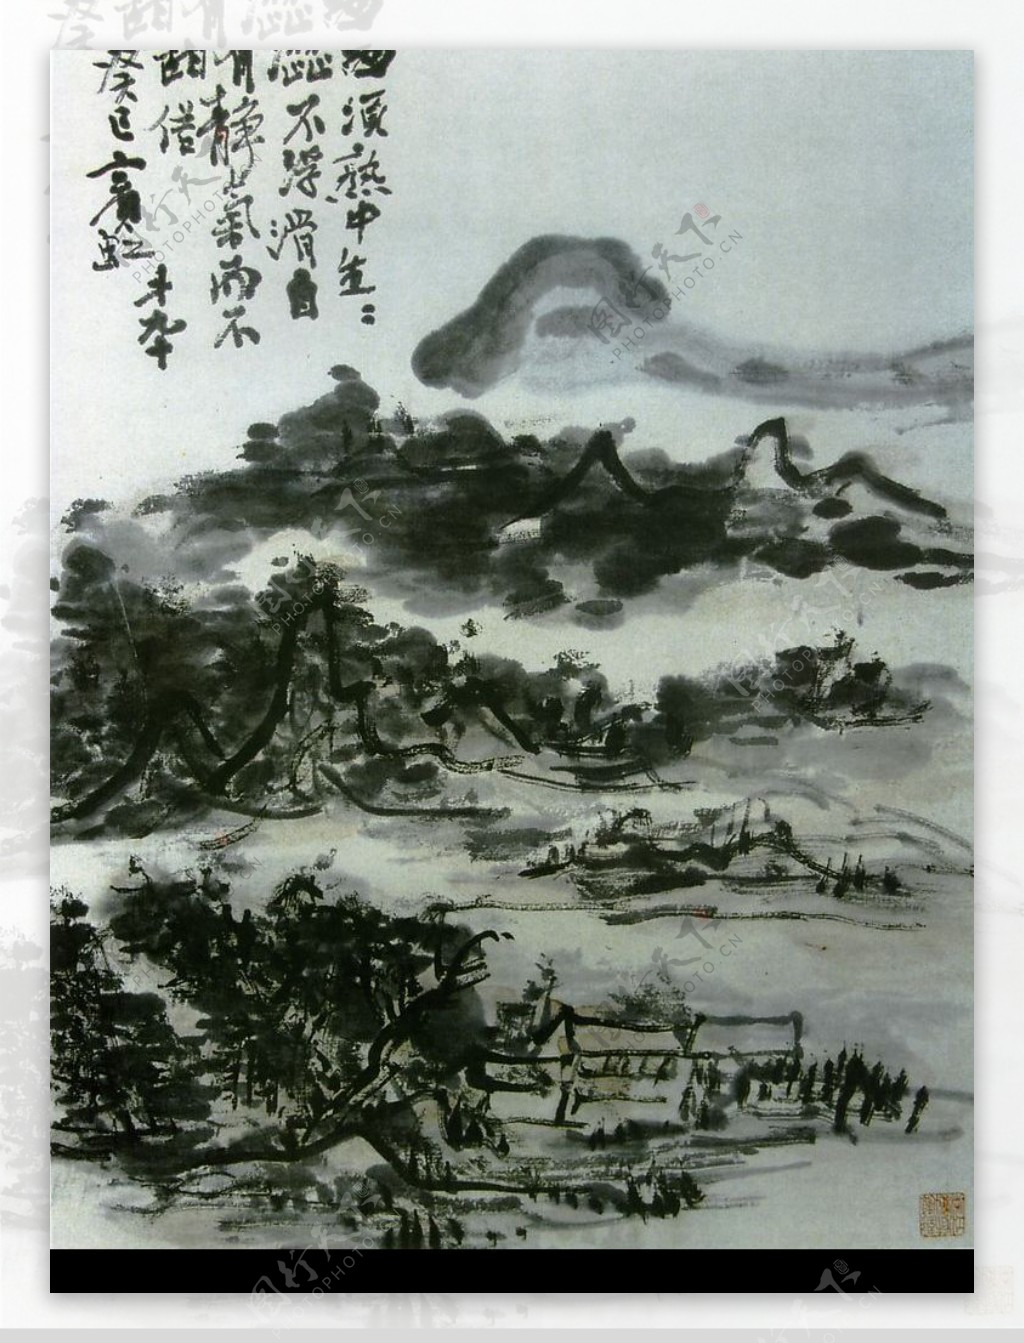 画須熟中生〻
澁不浮滑自
有静氣而不
甜俗
癸巳賓虹
年九十
图行天下
PHOTOPHOTO.CN